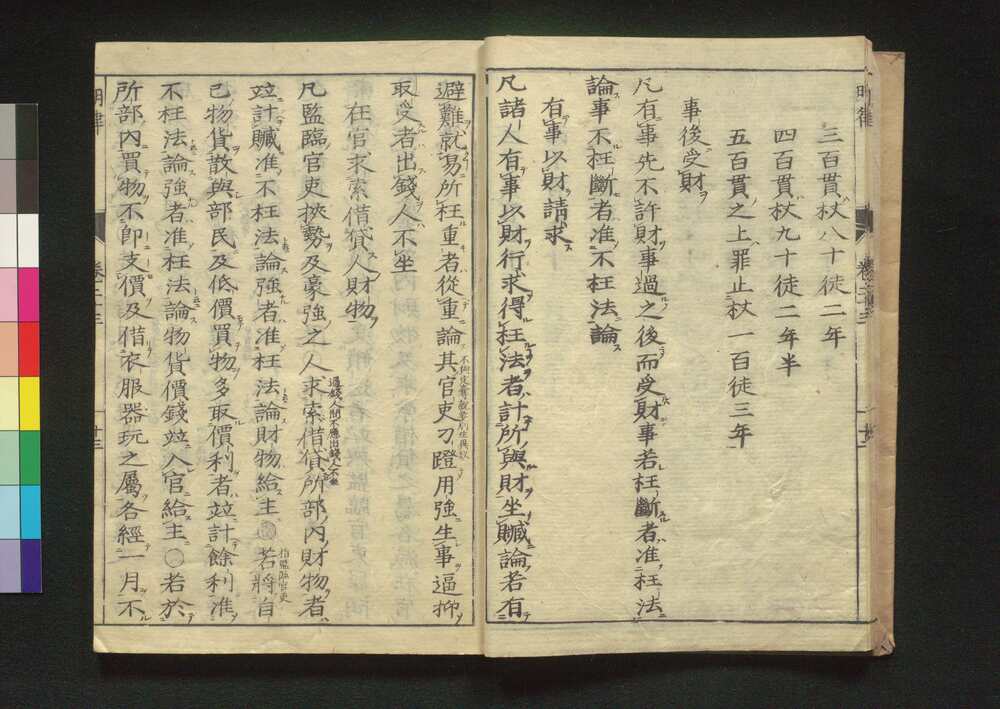 明律
卷二十三
三百貫杖八十徒二年
四百貫杖九十徒二年半
五百貫之上罪止杖一百徒三年
事後受財
凡有事先不許財事過之後而受財事若枉斷者准枉法
論事不枉斷者准不枉法論
有事以財請求
凡諸人有事以財行求得枉法者計所與財坐贓論若有
避難就易所枉重者從重論其官吏刁蹬用強生事逼抑
取受者出錢人不坐
在官求索借貸人財物
凡監臨官吏挾勢及豪強之人求索借貸所部內財物者
竝計贓准不枉法論強者准枉法論財物給主〇若將自
己物貨散與部民及低價買物多取價利者竝計餘利准
不枉法論強者准枉法論物貨價錢竝入官給主〇若於
所部內買物不即支價及借衣服器玩之屬各經一月不
明律
卷二十三